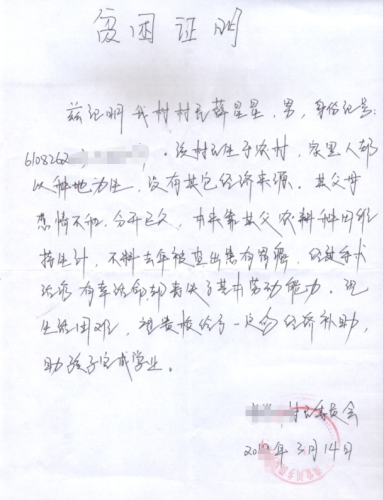 贫困证明
兹证明我村村民薛星星,男,身份证号:
6108262 ,该村民生于农村,家里人都
以种地为生,没有其它经济来源。其父母
感情不和,分开已久,本来靠其父农耕种田维
持生计,不料去年被查出患有胃癌,经过手术
治疗有幸治愈却丧失了基本劳动能力。现
生活困难,望贵校给予一定的经济补助,
助孩子完成学业。
村民委员会
20 年3月14日